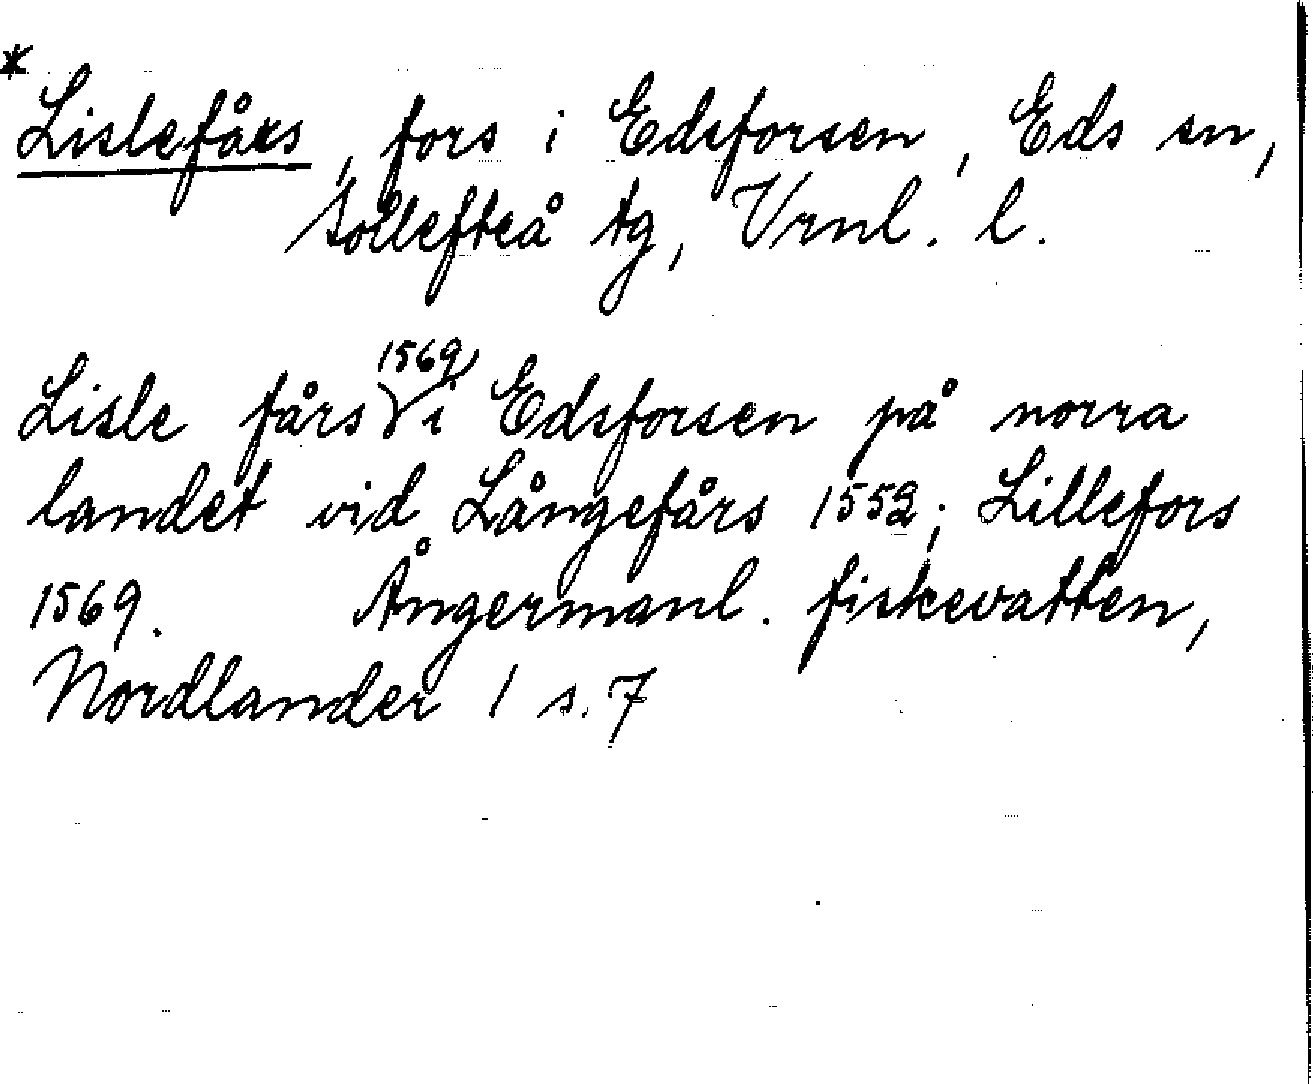 *
Lislefårs, fors i Edsforsen, Eds sn,
Sollefteå tg, Vrnl. l.
1569
Lisle fårs i Edsforsen på norra
landet vid Långefårs 1552; Lillefors
1569. Ångermanl. fiskevatten,
Nordlander 1 s. 7